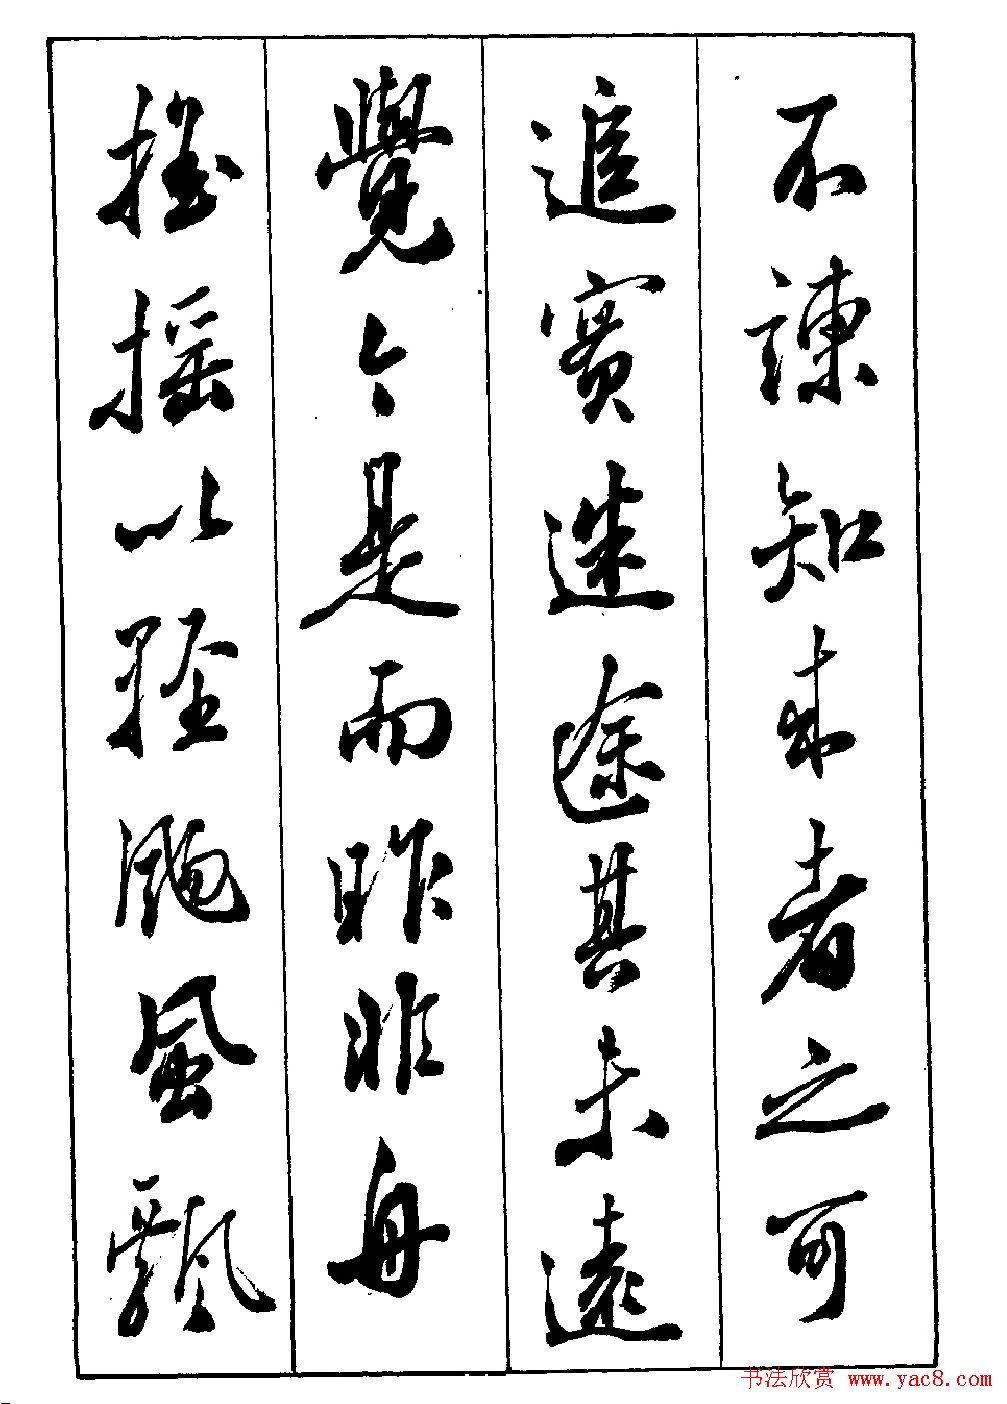 不諫知來者之可
追實迷途其未遠
覺今是而昨非舟
搖搖以輕颺風飄
书法欣赏 www.yac8.com